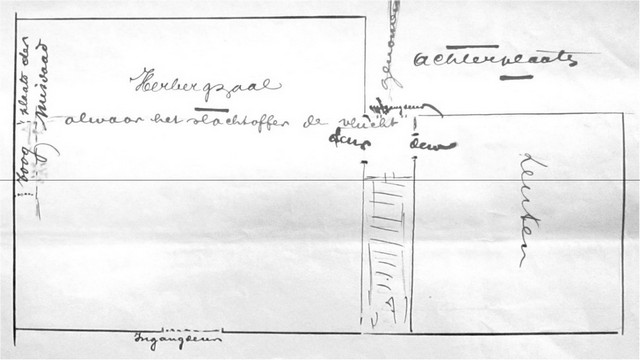 Toog
plaats der
misdaad
Herbergzaal
alwaar het slachtoffer de vlucht
genomen
Achterplaats
deur
deur
Keuken
Ingangdeur